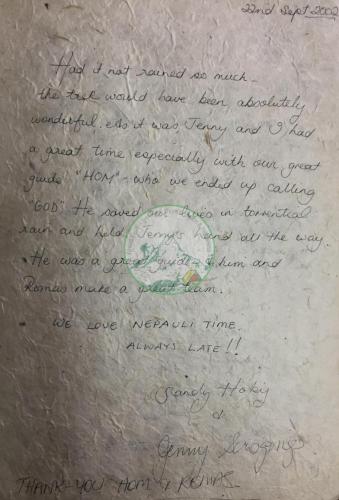 22nd Sept 2002
Had it not rained so much -
the trek would have been absolutely
wonderful. As it was, Jenny and I had
a great time especially with our great
guide "HOM" - who we ended up calling
"GOD" He saved our lives in torrential
rain and held Jenny's hand all the way.
He was a great guide - him and
make a great team.
WE LOVE NEPAULI TIME.
ALWAYS LATE!!
Sandy
&
Jenny
THANK-YOU HOM &